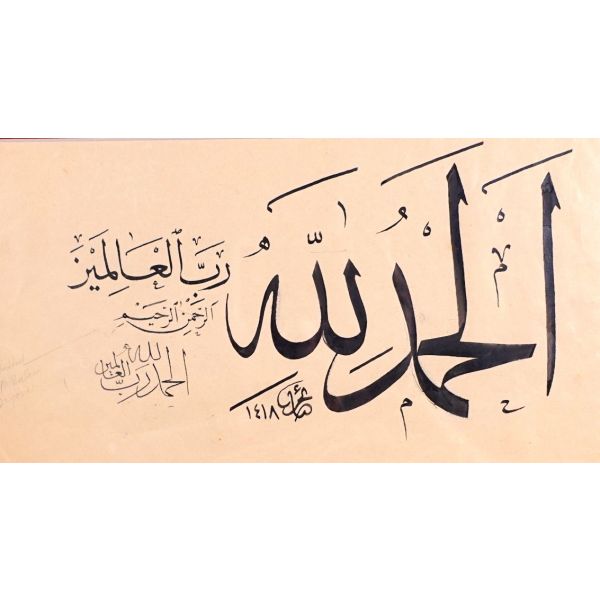 الحمد لله
رب العالمين
الرحمن الرحيم
الحمد لله رب العالمين
١٤١٨